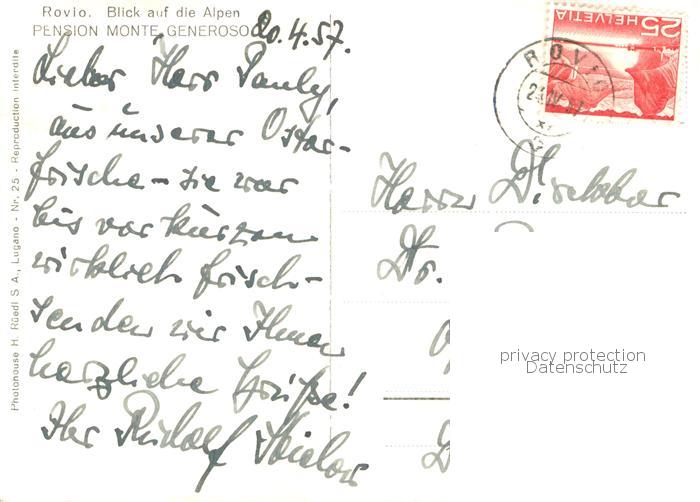 Rovio. Blick auf die Alpen
PENSION MONTE GENEROSO
20.4.57.
Lieber Herr Pauly,
aus unserer Oster-
frische – sie war
bis vor kurzem
wirklich frisch –
senden wir Ihnen
herzliche Grüße!
Ihr Rudolf
Photohouse H. Rüedi S A., Lugano - Nr. 25 - Reproduction interdite
HELVETIA
25
ROVIO
Herrn Direktor
Dr.
privacy protection
Datenschutz